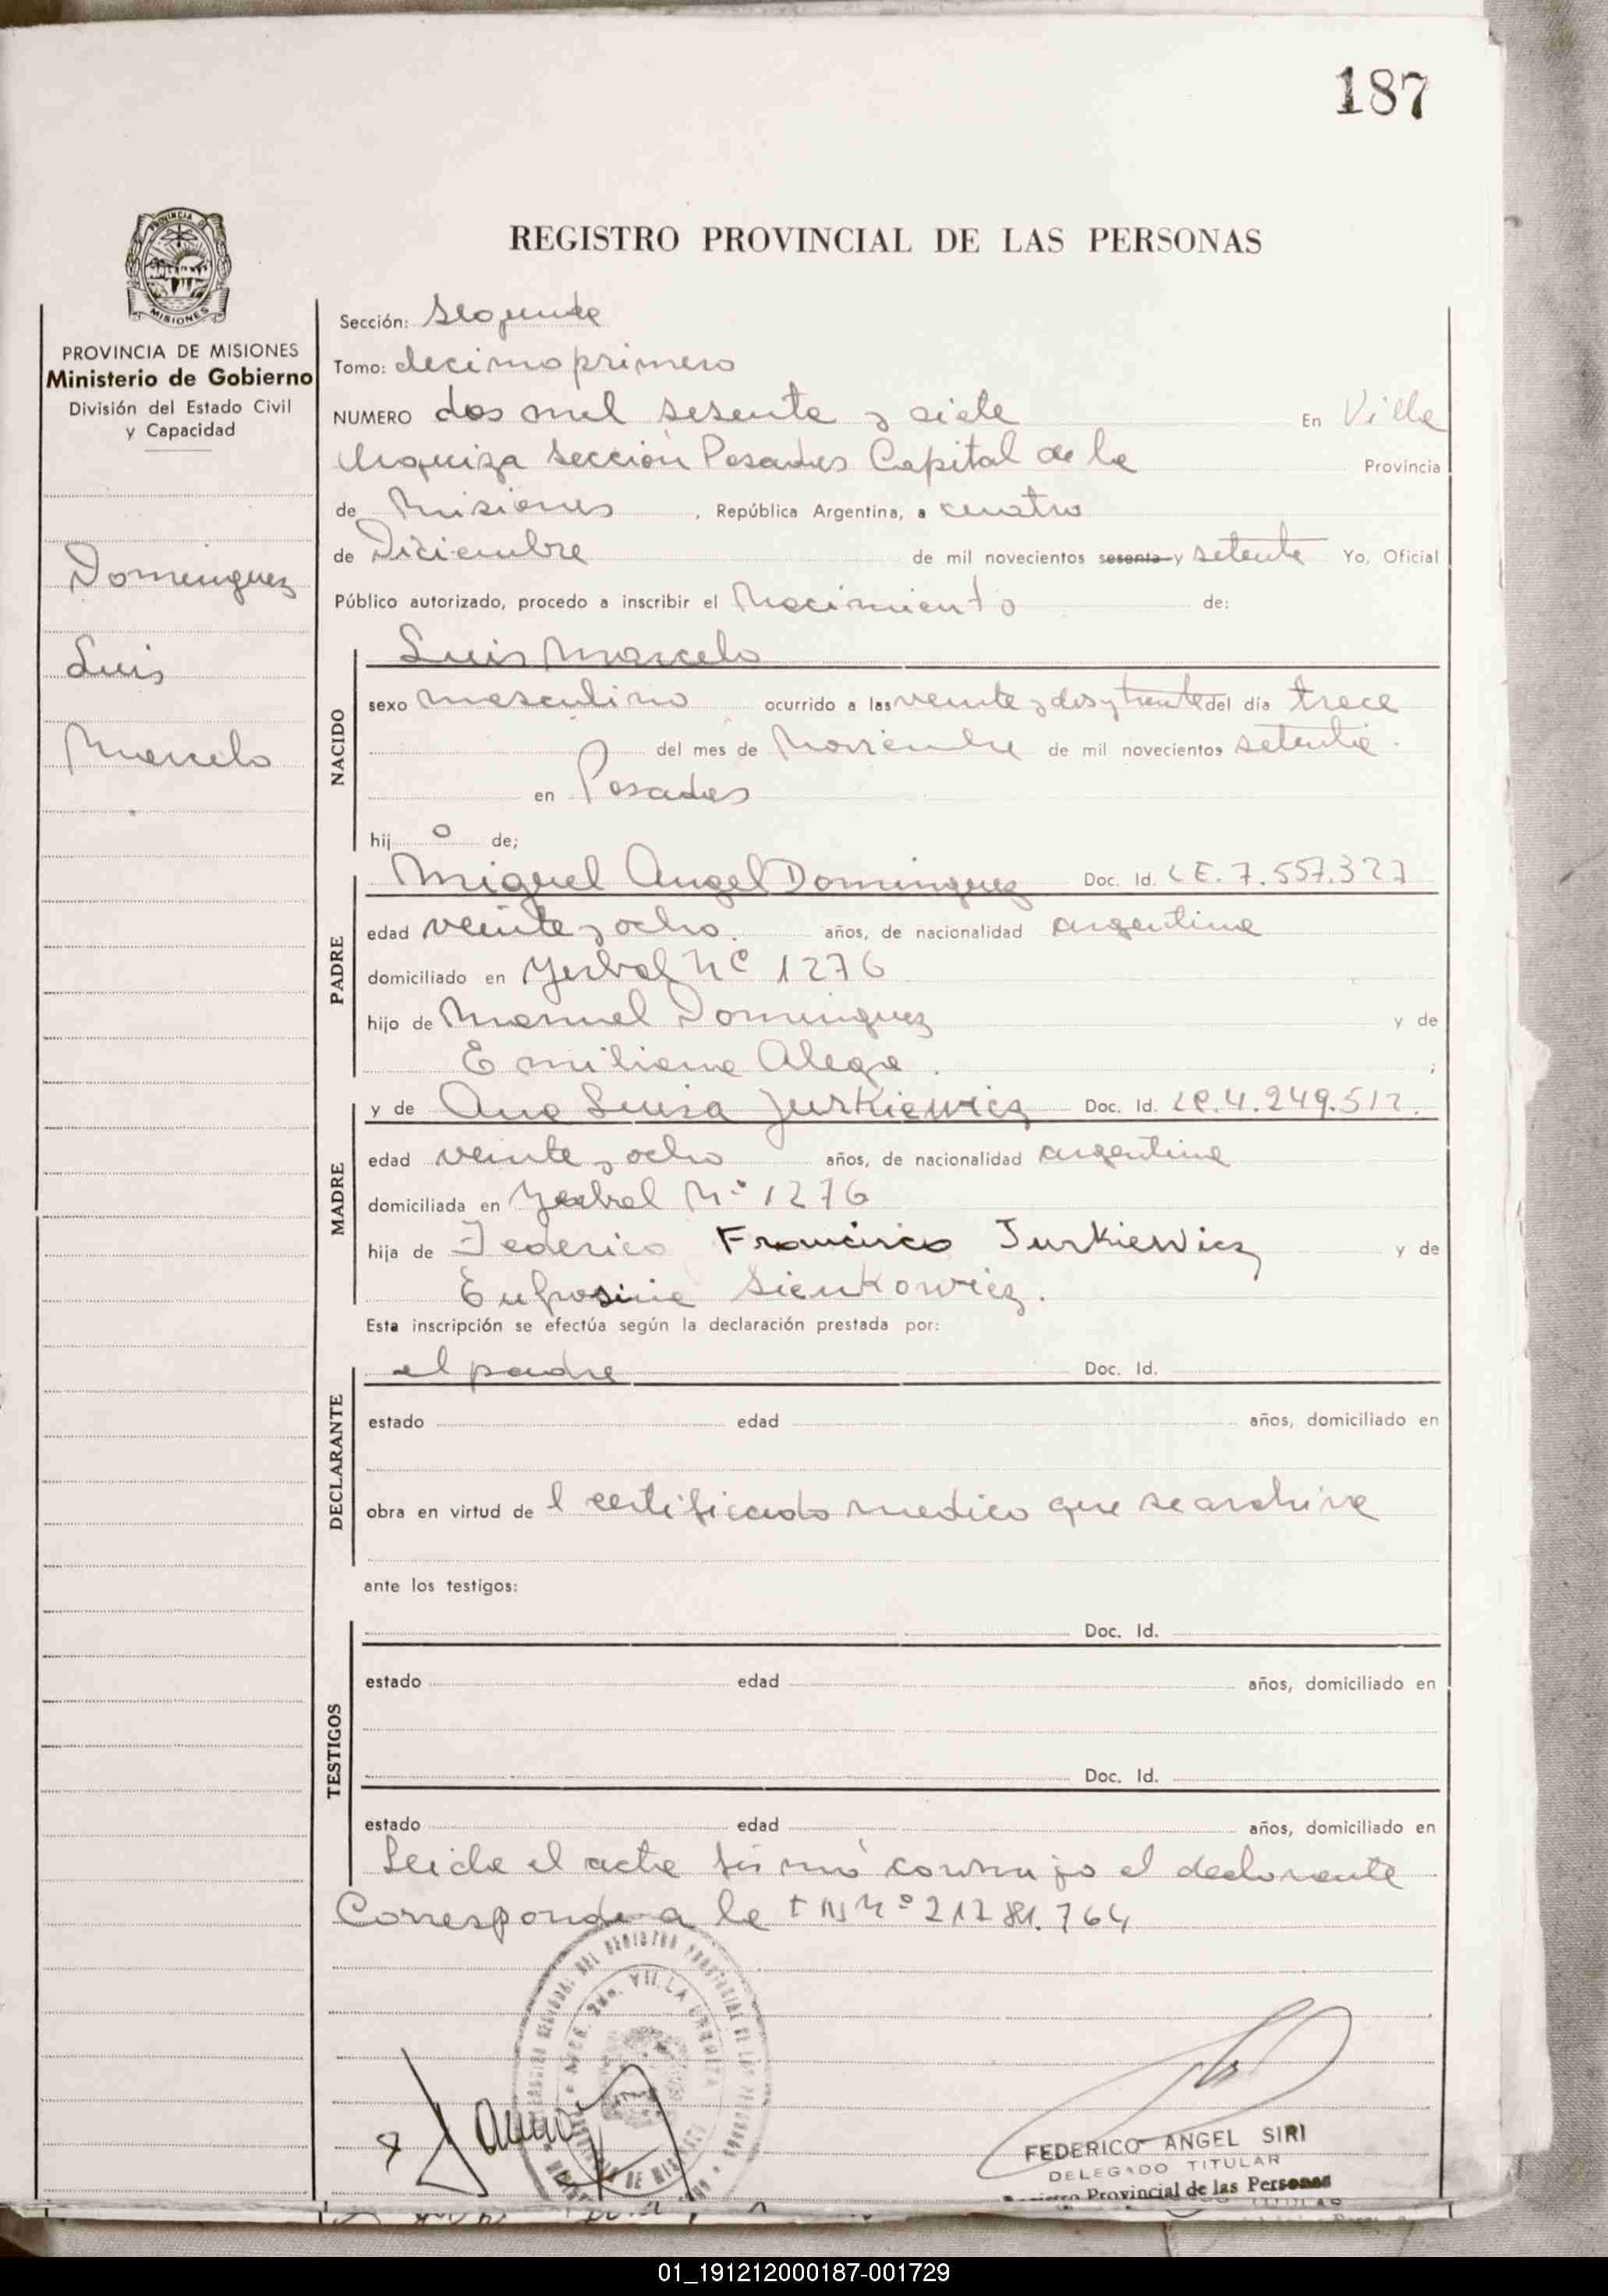 187
REGISTRO PROVINCIAL DE LAS PERSONAS
PROVINCIA DE MISIONES
MISIONES
PROVINCIA DE MISIONES
Ministerio de Gobierno
División del Estado Civil
y Capacidad
Dominguez
Luis
Marcelo
Sección: Segunda
Tomo: decimo primero
NUMERO dos mil sesenta y siete En Villa
Urquiza Sección Posadas Capital de la Provincia
de Misiones, República Argentina, a cuatro
de Diciembre de mil novecientos sesenta y setenta Yo, Oficial
Público autorizado, procedo a inscribir el Nacimiento de:
NACIDO
Luis Marcelo
sexo masculino ocurrido a las veinte y dos y treinta del día trece
del mes de Noviembre de mil novecientos setenta.
en Posadas
hij o de;
PADRE
Miguel Angel Dominguez Doc. Id. LE. 7.557.327
edad veinte y ocho. años, de nacionalidad argentina
domiciliado en Yerbal Nº 1276
hijo de Manuel Dominguez y de
Emiliana Alega. ;
MADRE
y de Ana Luisa Jurkiewicz Doc. Id. LC.4.249.512.
edad veinte y ocho años, de nacionalidad argentina
domiciliada en Yerbal Nº 1276
hija de Federico Francisco Jurkiewicz y de
Eufrosina Sienkowicz.
Esta inscripción se efectúa según la declaración prestada por:
DECLARANTE
el padre Doc. Id.
estado edad años, domiciliado en
obra en virtud de l certificado medico que se archiva
ante los testigos:
TESTIGOS
Doc. Id.
estado edad años, domiciliado en
Doc. Id.
estado edad años, domiciliado en
Leida el acta firmó conmigo el declarante
Corresponde a la
VILLA URQUIZA
FEDERICO ANGEL SIRI
DELEGADO TITULAR
Provincial de las Personas
01_191212000187-001729